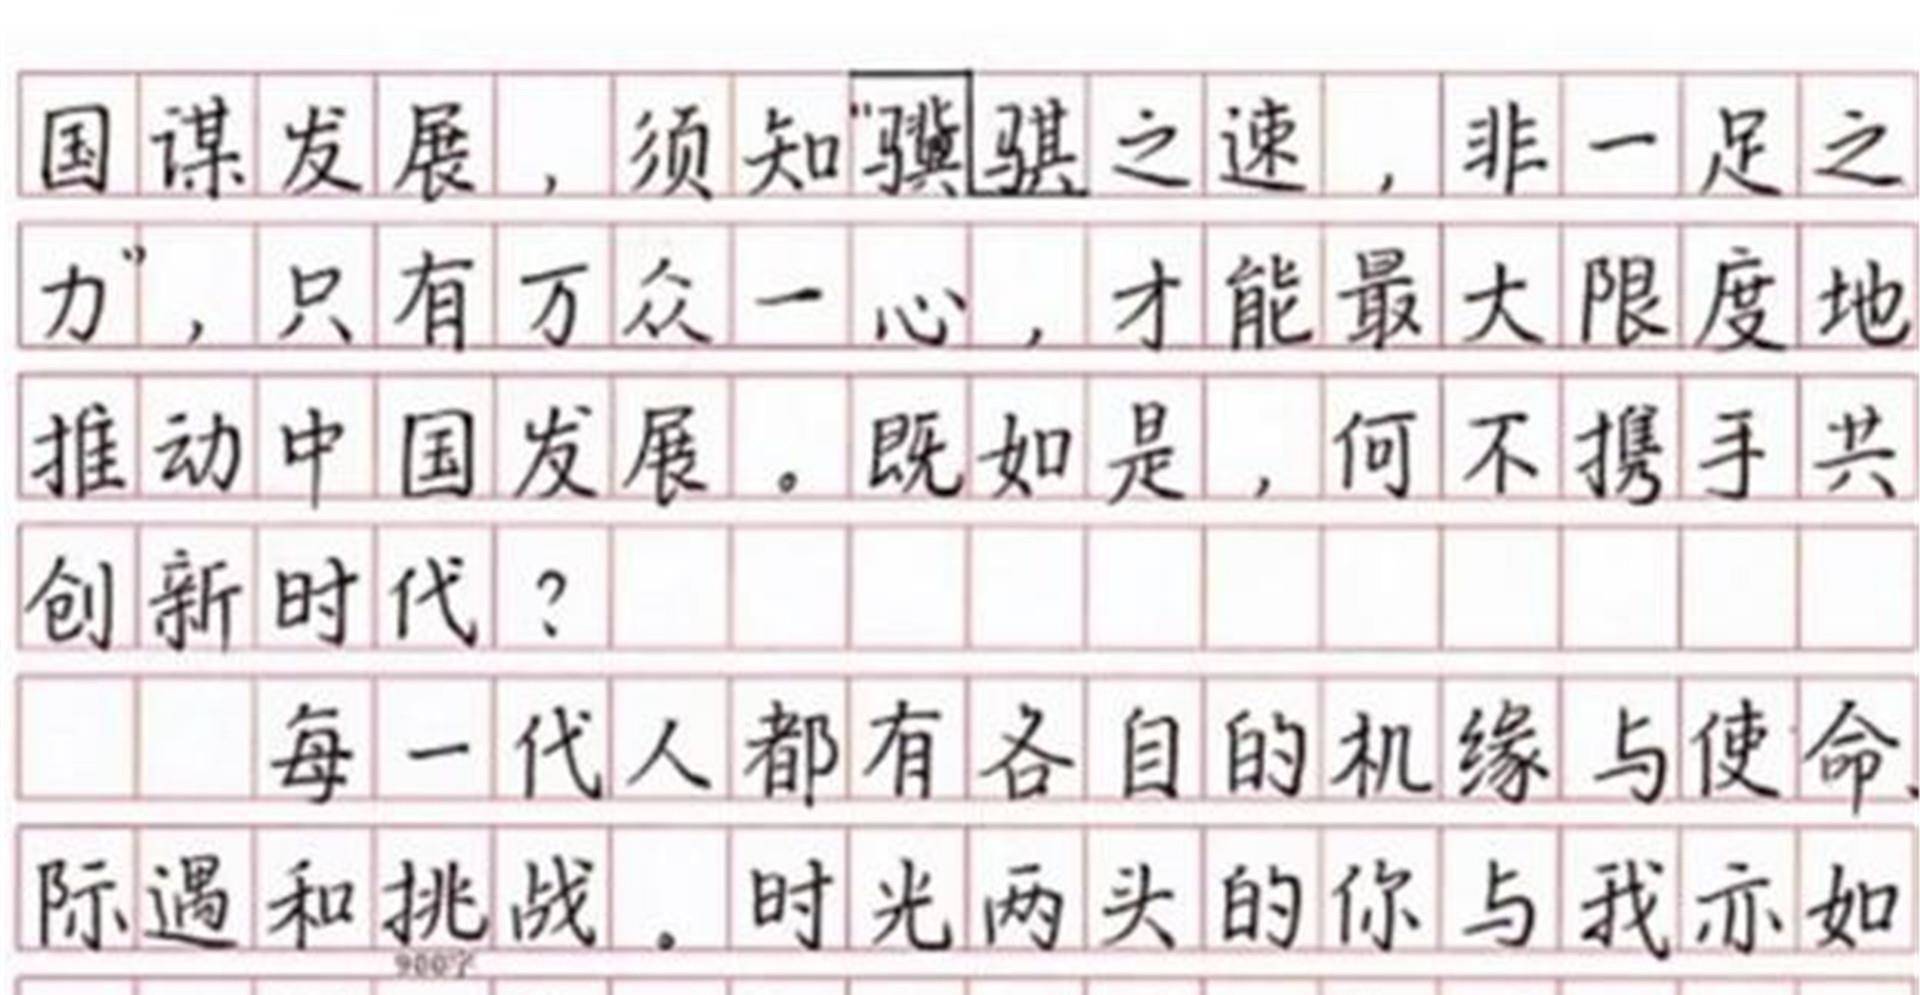 国谋发展，须知“骥骐之速，非一足之
力”，只有万众一心，才能最大限度地
推动中国发展。既如是，何不携手共
创新时代？
每一代人都有各自的机缘与使命、
际遇和挑战。时光两头的你与我亦如
900字